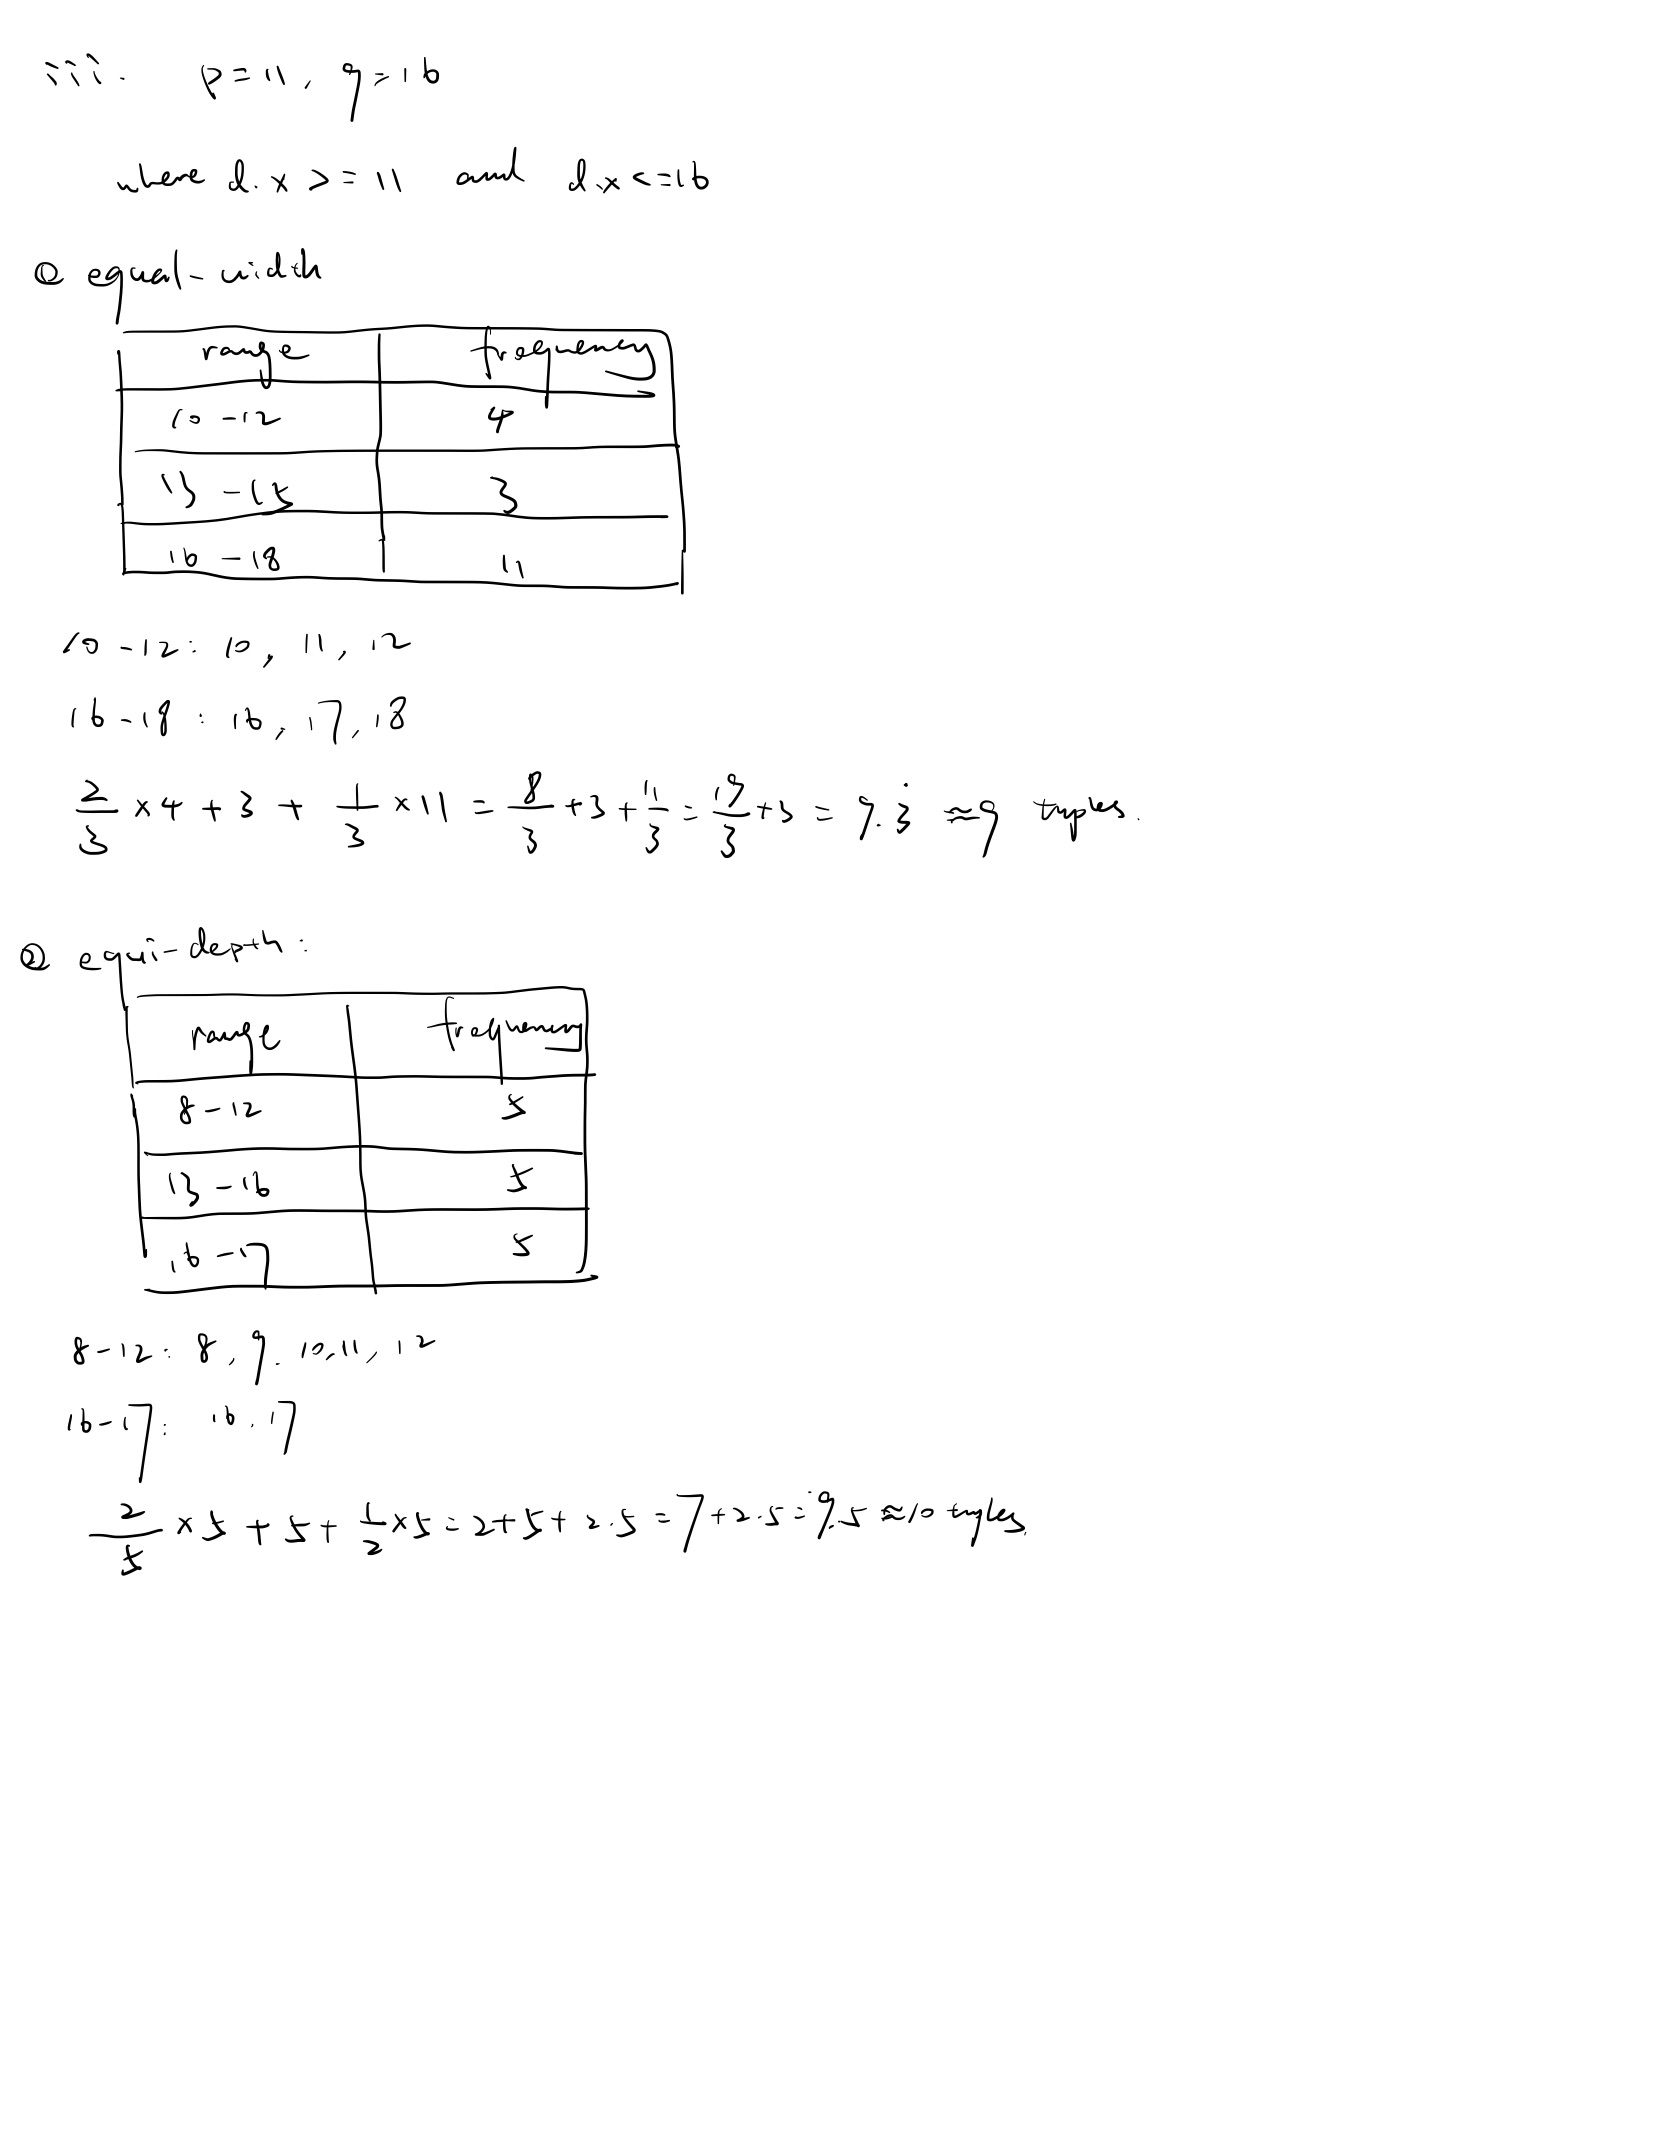 iii. p=11, q=16
where d.x >= 11 and d.x <=16
① equal-width
range frequency
10-12 4
13-15 3
16-18 11
10-12: 10, 11, 12
16-18: 16, 17, 18
2/3 ×4 + 3 + 1/3 ×11 = 8/3 +3+ 11/3 = 19/3 +3 = 9.3̇ ≈9 tuples.
② equi-depth:
range frequency
8-12 5
13-16 5
16-17 5
8-12: 8, 9. 10, 11, 12
16-17: 16. 17
2/5 ×5 + 5 + 1/2 ×5 = 2+5+ 2.5 = 7+2.5 = 9.5 ≈10 tuples.